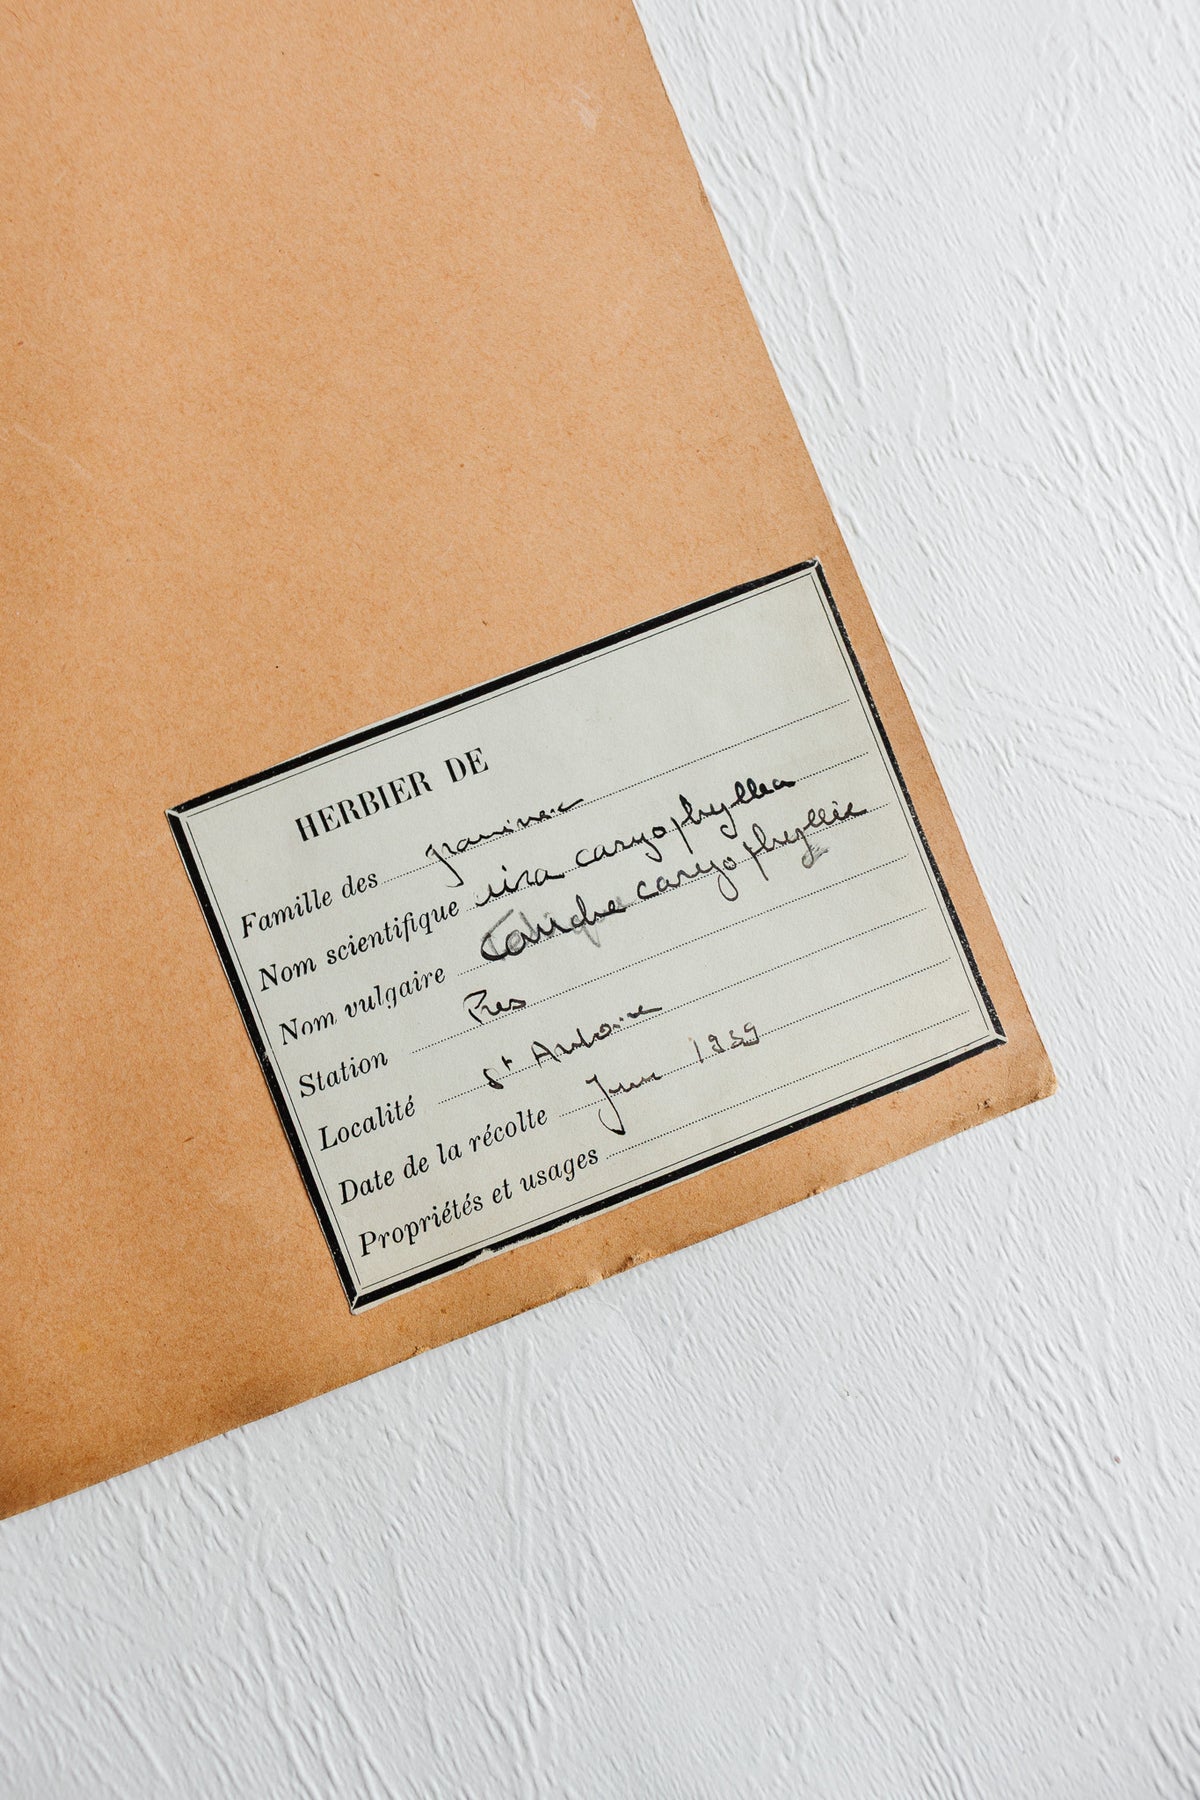 HERBIER DE
Famille des graminées
Nom scientifique aira caryophyllea
Nom vulgaire Canche caryophyllée
Station Prés
Localité St Antoine
Date de la récolte Juin 1939
Propriétés et usages